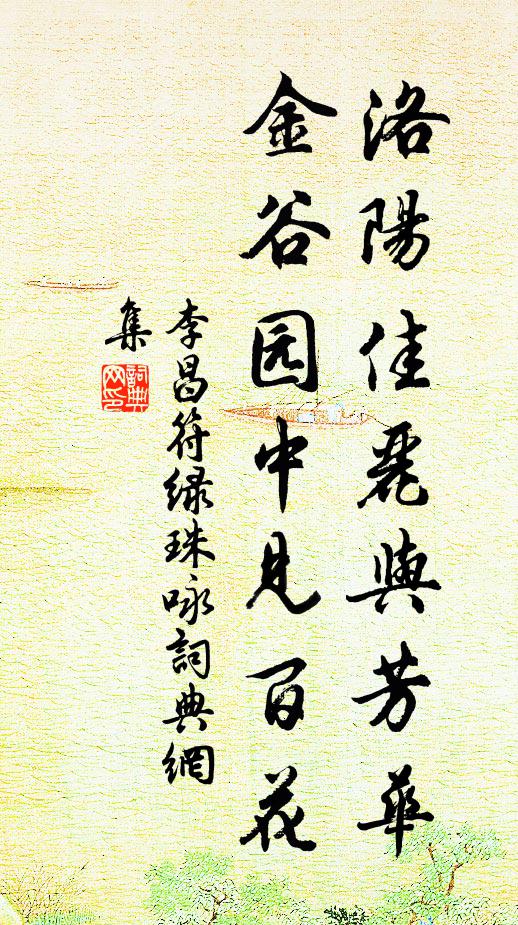 洛陽佳麗與芳華
金谷园中見百花
李昌符绿珠咏詞典網
集
詞典网印